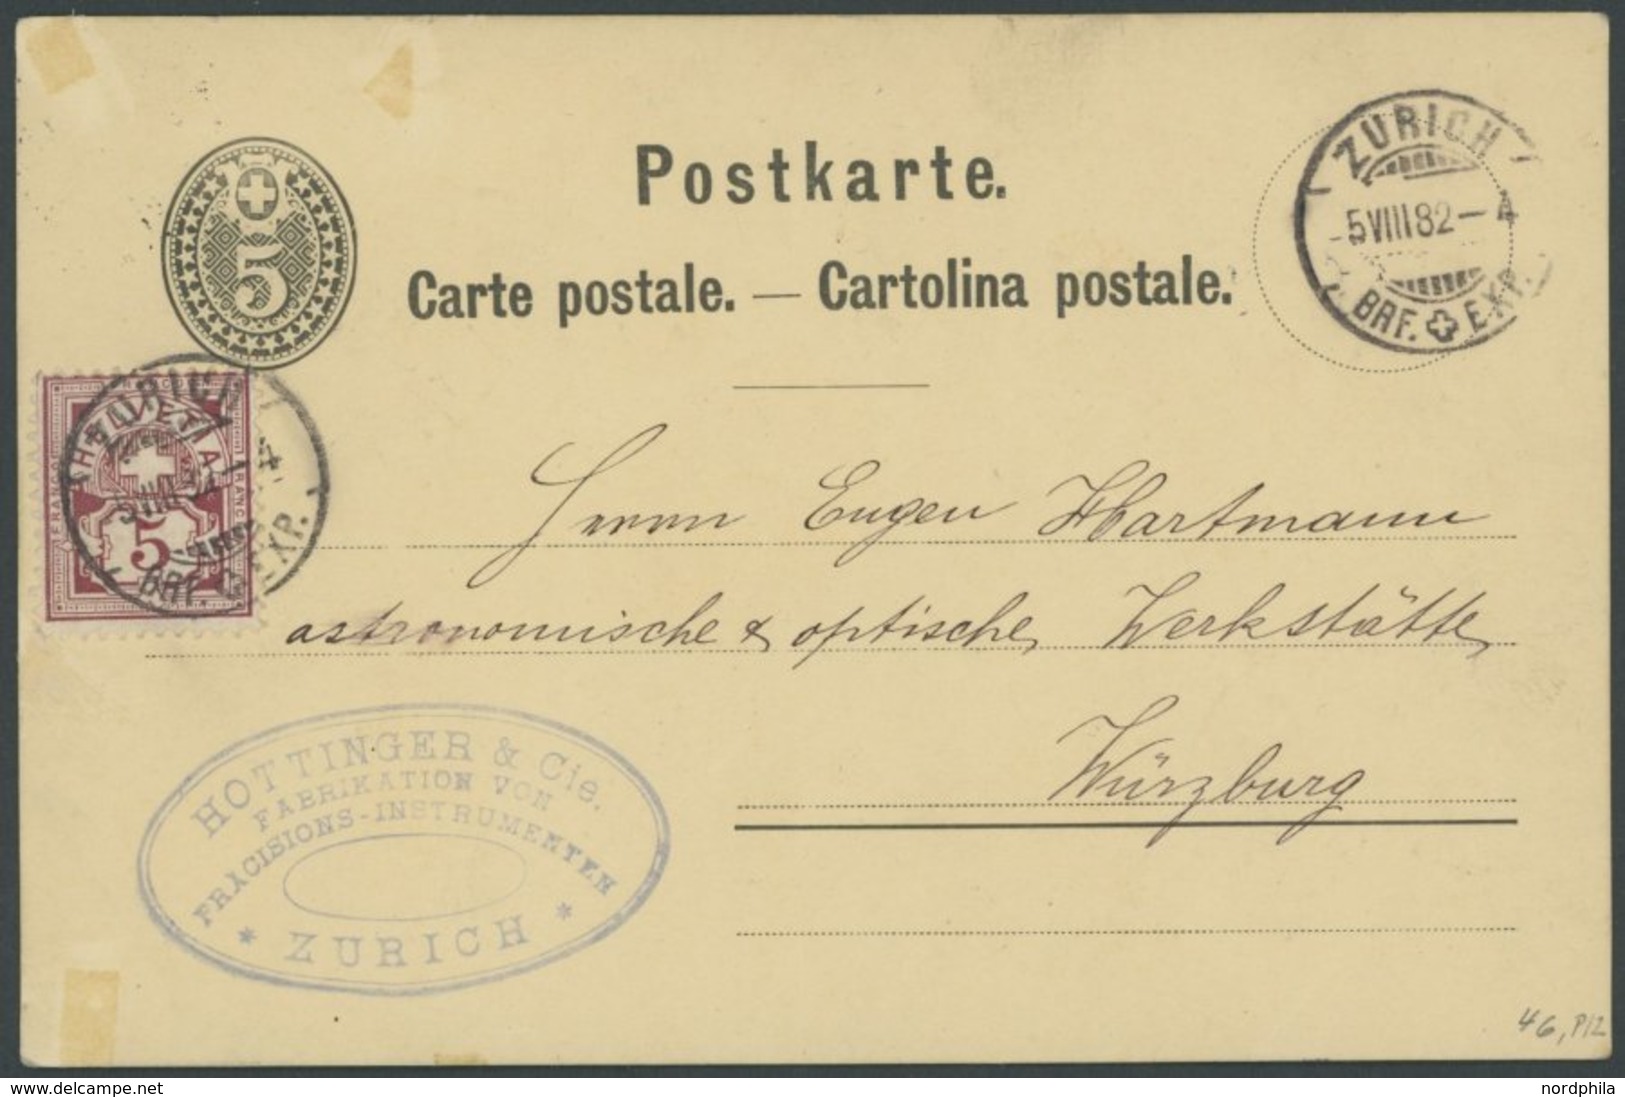 Postkarte.
Carte postale. — Cartolina postale.
5
ZÜRICH
5 VIII 82 – 4
BRF. EXP.
FRANCO
HELVETIA
5
ZÜRICH
5 VIII 82 – 4
BRF. EXP.
Herrn Eugen Hartmann
astronomische & optische Werkstätte
Würzburg
HOTTINGER & Cie.
FABRIKATION VON
PRÄCISIONS-INSTRUMENTEN
* ZÜRICH *
46, P12
www.delcampe.net
nordphila